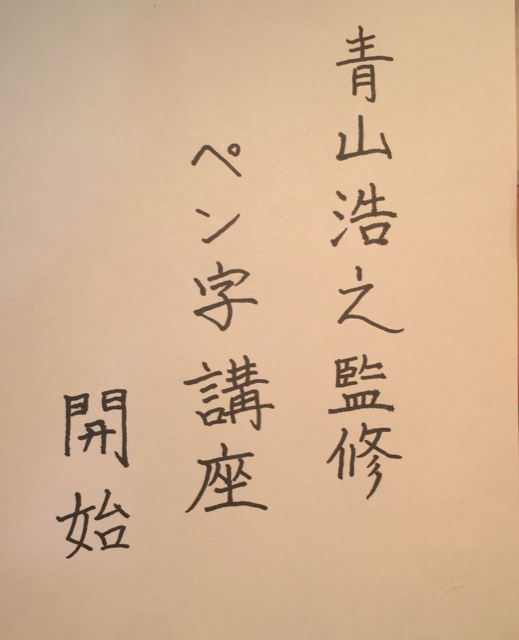 青山浩之監修
ペン字講座
開始